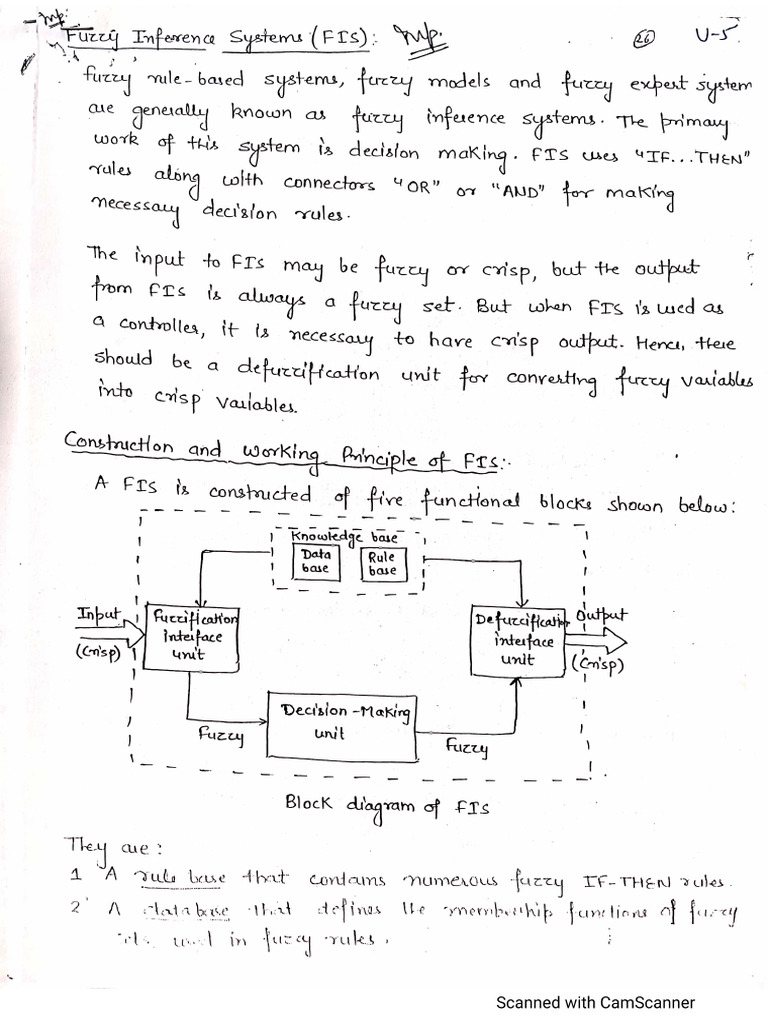 Imp.
Fuzzy Inference Systems (FIS): Imp. 26 U-5
fuzzy rule-based systems, fuzzy models and fuzzy expert system
are generally known as fuzzy inference systems. The primary
work of this system is decision making. FIS uses "IF...THEN"
rules along with connectors "OR" or "AND" for making
necessary decision rules.
The input to FIS may be fuzzy or crisp, but the output
from FIS is always a fuzzy set. But when FIS is used as
a controller, it is necessary to have crisp output. Hence, there
should be a defuzzification unit for converting fuzzy variables
into crisp variables.
Construction and Working Principle of FIS:
A FIS is constructed of five functional blocks shown below:
Knowledge base
Data base
Rule base
Input
(Crisp)
Fuzzification
interface
unit
Defuzzification
interface
unit
Output
(Crisp)
Decision-Making
unit
Fuzzy
Fuzzy
Block diagram of FIS
They are:
1 A rule base that contains numerous fuzzy IF-THEN rules.
2 A database that defines the membership functions of fuzzy
sets used in fuzzy rules.
Scanned with CamScanner